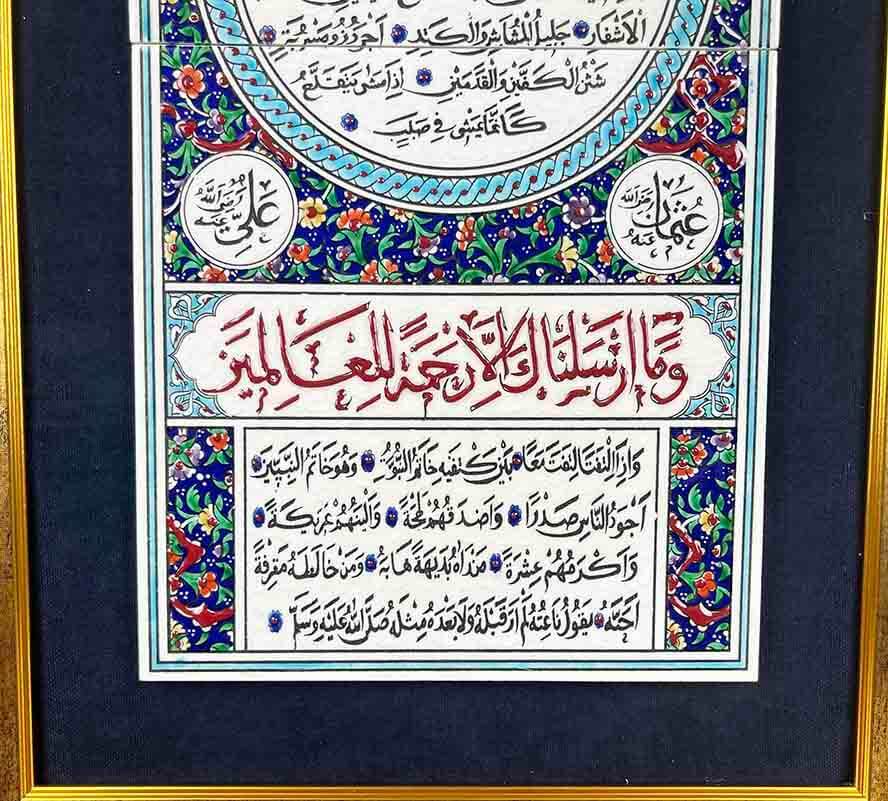 الأشفار جليل المشاش والكتد أجرد ذو مسربة
شثن الكفين والقدمين إذا مشى يتقلع
كأنما يمشي في صبب
عثمان رضي الله عنه
علي رضي الله عنه
وَمَا أَرْسَلْنَاكَ إِلَّا رَحْمَةً لِلْعَالَمِينَ
وَإِذَا الْتَفَتَ الْتَفَتَ مَعًا بَيْنَ كَتِفَيْهِ خَاتَمُ النُّبُوَّةِ وَهُوَ خَاتَمُ النَّبِيِّينَ
أَجْوَدُ النَّاسِ صَدْرًا وَأَصْدَقُهُمْ لَهْجَةً وَأَلْيَنُهُمْ عَرِيكَةً
وَأَكْرَمُهُمْ عِشْرَةً مَنْ رَآهُ بَدِيهَةً هَابَهُ وَمَنْ خَالَطَهُ مَعْرِفَةً
أَحَبَّهُ يَقُولُ نَاعِتُهُ لَمْ أَرَ قَبْلَهُ وَلَا بَعْدَهُ مِثْلَهُ صَلَّى اللهُ عَلَيْهِ وَسَلَّمَ